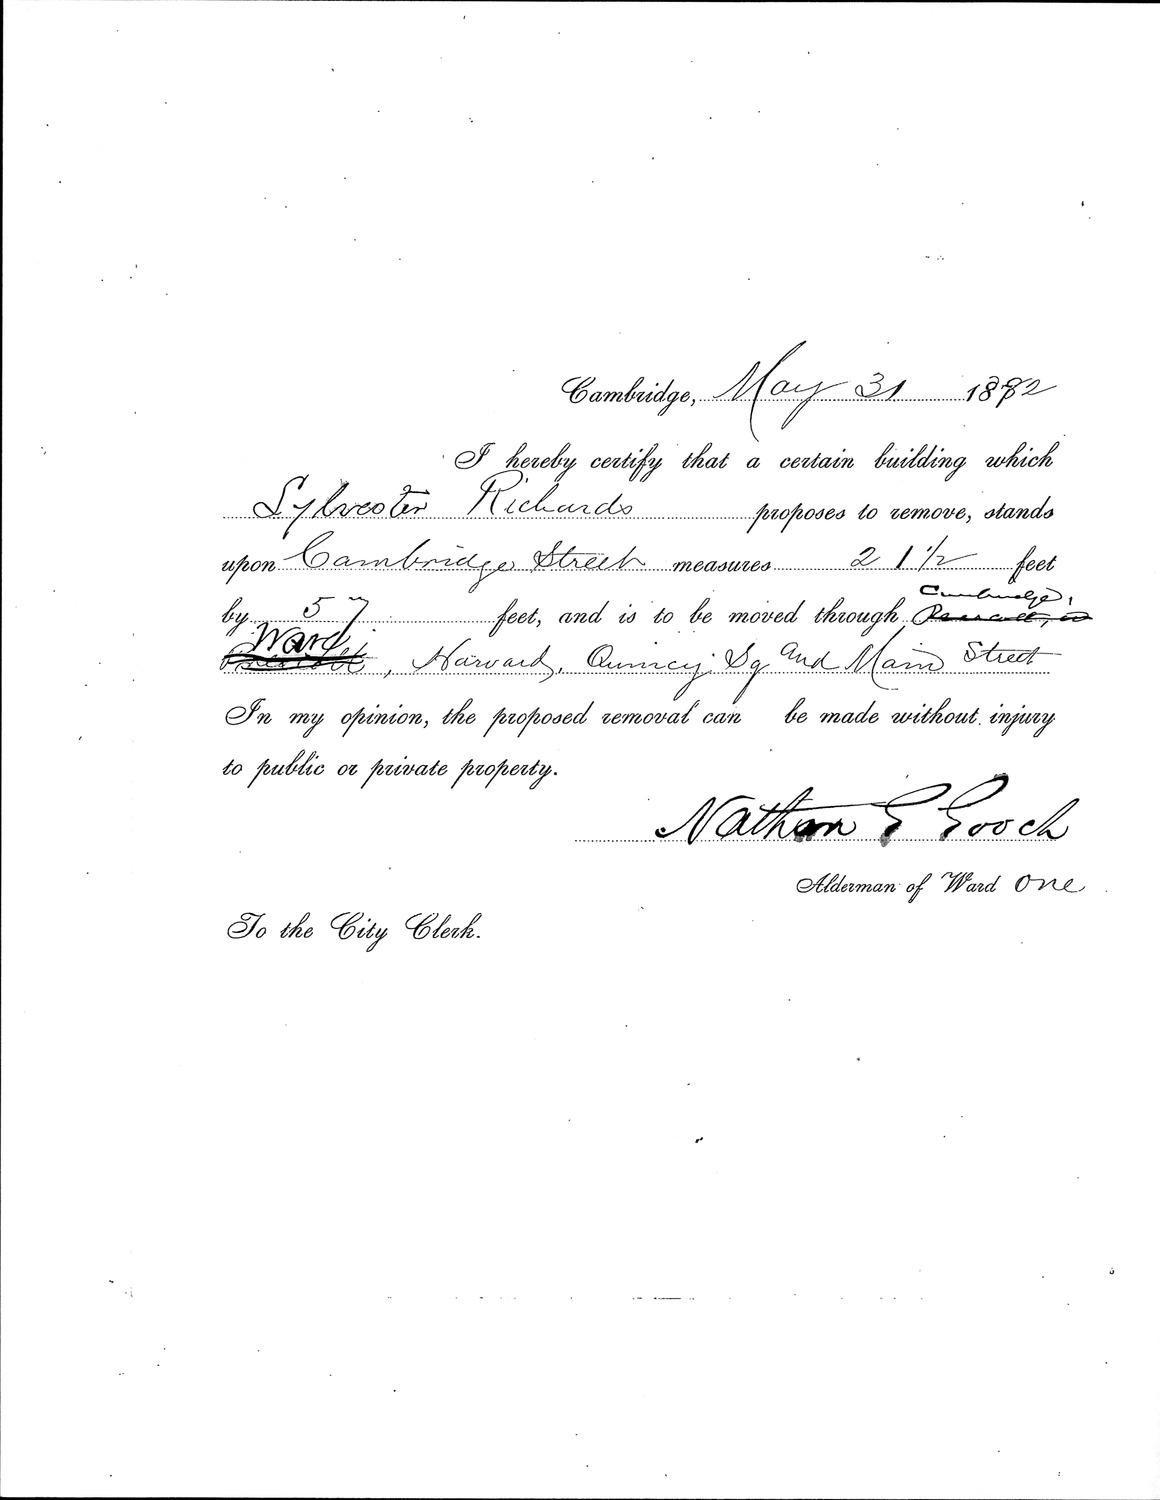 Cambridge, May 31 1882
I hereby certify that a certain building which
Sylvester Richards proposes to remove, stands
upon Cambridge Street measures 21 1/2 feet
by 57 feet, and is to be moved through Cambridge,
Ward, Harvard, Quincy Sq and Main Street
In my opinion, the proposed removal can be made without injury
to public or private property.
Nathan G Gooch
Alderman of Ward One
To the City Clerk.